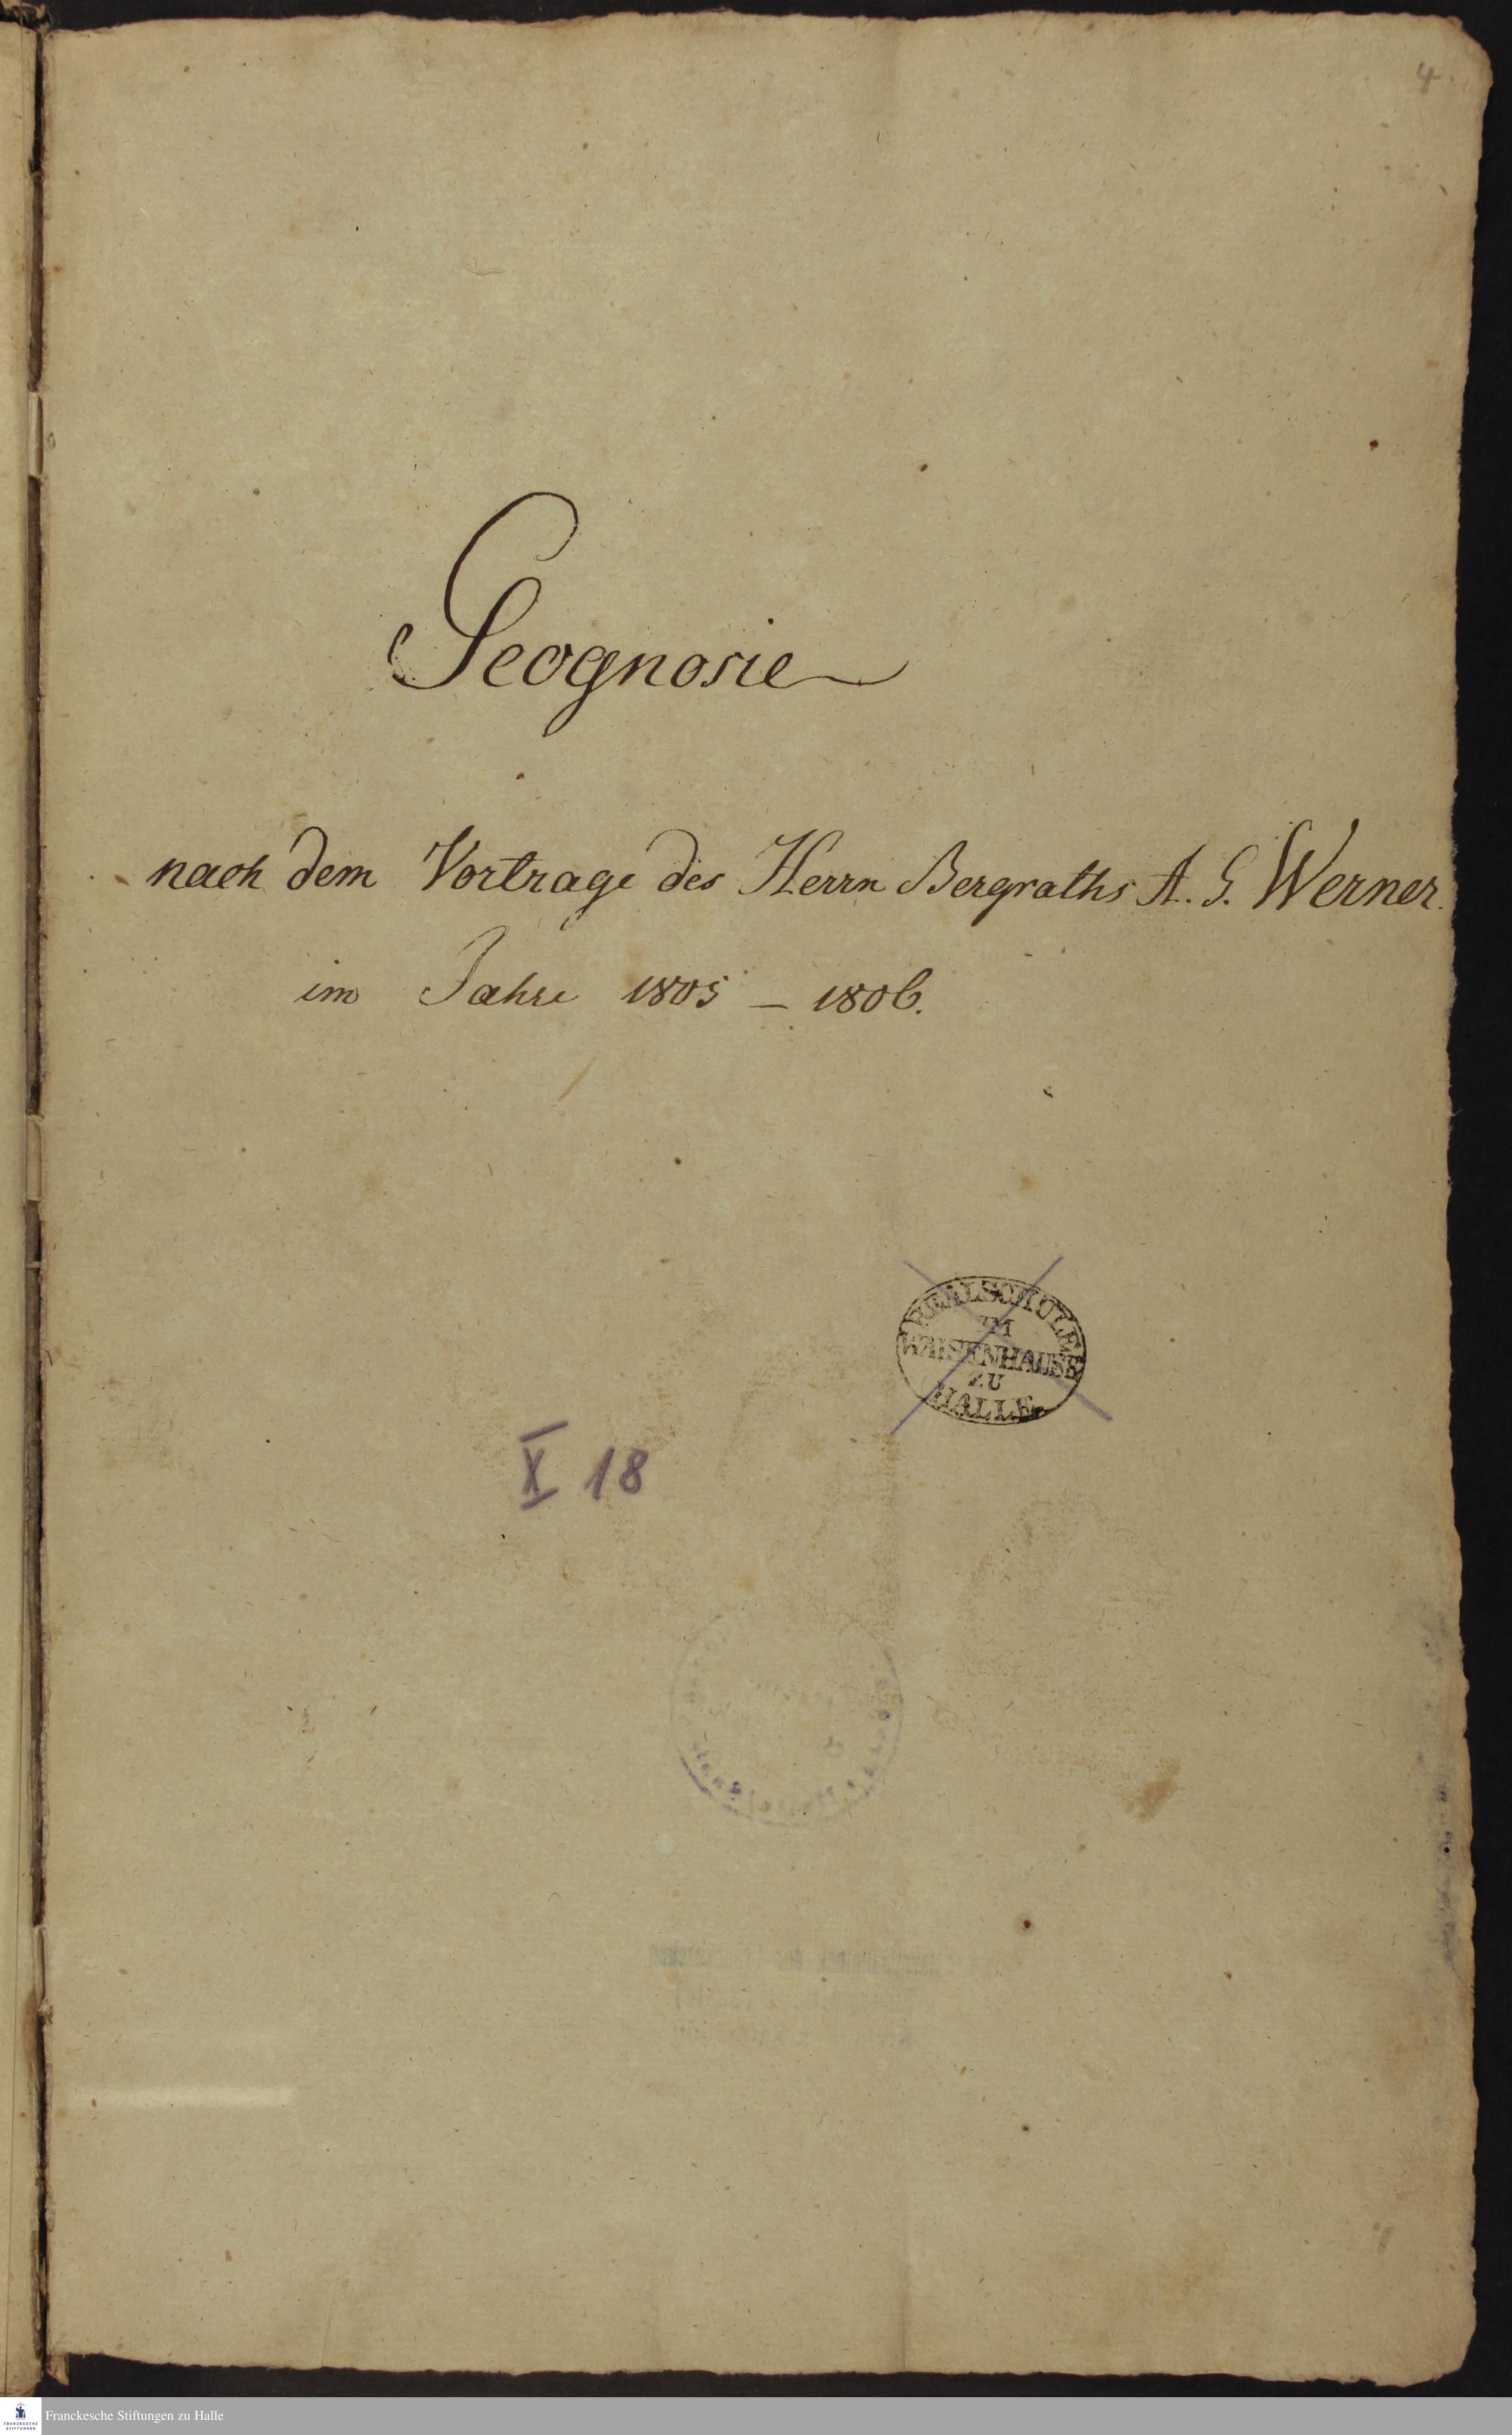 4
Geognosie
nach dem Vortrage des Herrn Bergraths A. G. Werner.
im Jahre 1805 – 1806.
REALSCHULE
IM
WAISENHAUSE
ZU
HALLE.
X 18
Franckesche Stiftungen zu Halle
FRANCKESCHE
STIFTUNGEN